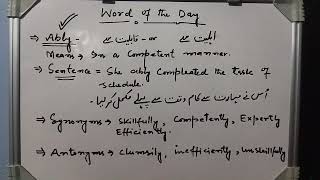 Word of the Day
⇒ Ably - قابلیت سے - or اہلیت سے
Means ⇒ In a Competent manner.
⇒ Sentence = She ably Compleated the taske of
schedule.
اُس نے مہارت سے کام وقت سے پہلے مکمل کر لیا۔
⇒ Synonyms ⇒ Skillfully, Competently, Expertly
Efficiently.
⇒ Antonyms ⇒ Clumsily, inefficiently, Unskillfully